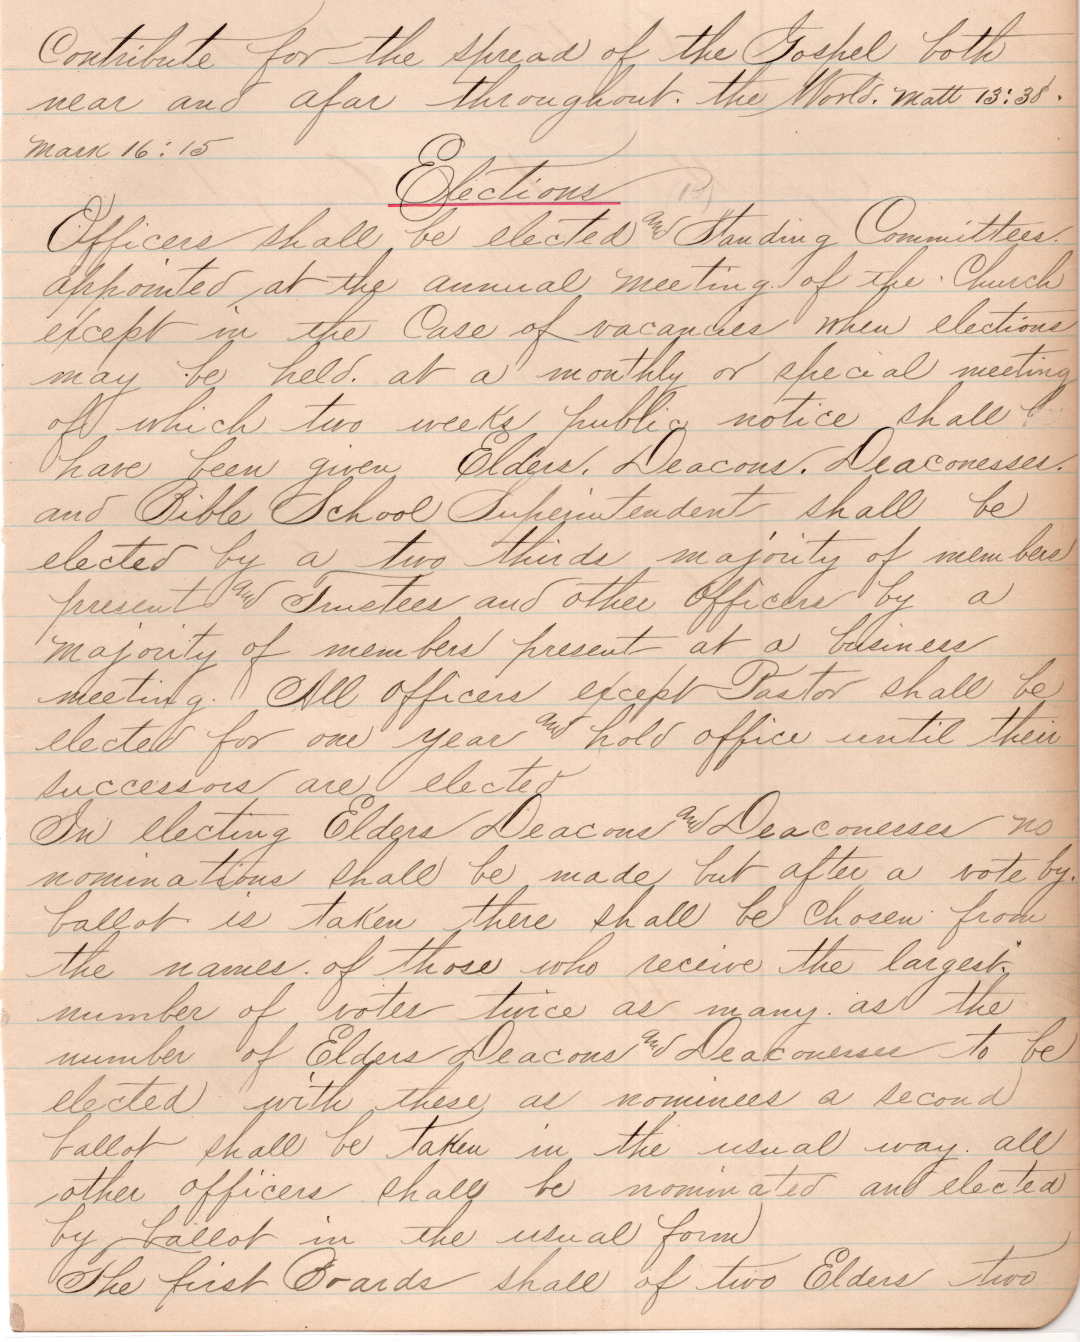 Contribute for the spread of the Gospel both
near and afar throughout. the World. Matt 13:38.
Mark 16:15
Elections
Officers shall be elected and Standing Committees.
appointed at the annual meeting of the Church
except in the Case of vacancies when elections
may be held. at a monthly or special meeting
of which two weeks public notice shall
have been given Elders. Deacons. Deaconesses.
and Bible School Superintendent shall be
elected by a two thirds majority of members
present and Trustees and other Officers by a
majority of members present at a business
meeting. All officers except Pastor shall be
elected for one year and hold office until their
successors are elected
In electing Elders Deacons and Deaconesses no
nominations shall be made but after a vote by.
ballot is taken there shall be chosen from
the names. of those who receive the largest.
number of votes twice as many. as the
number of Elders Deacons and Deaconesses to be
elected with these as nominees a second
ballot shall be taken in the usual way. all
other officers shall be nominated and elected
by ballot in the usual form
The first Boards shall of two Elders two